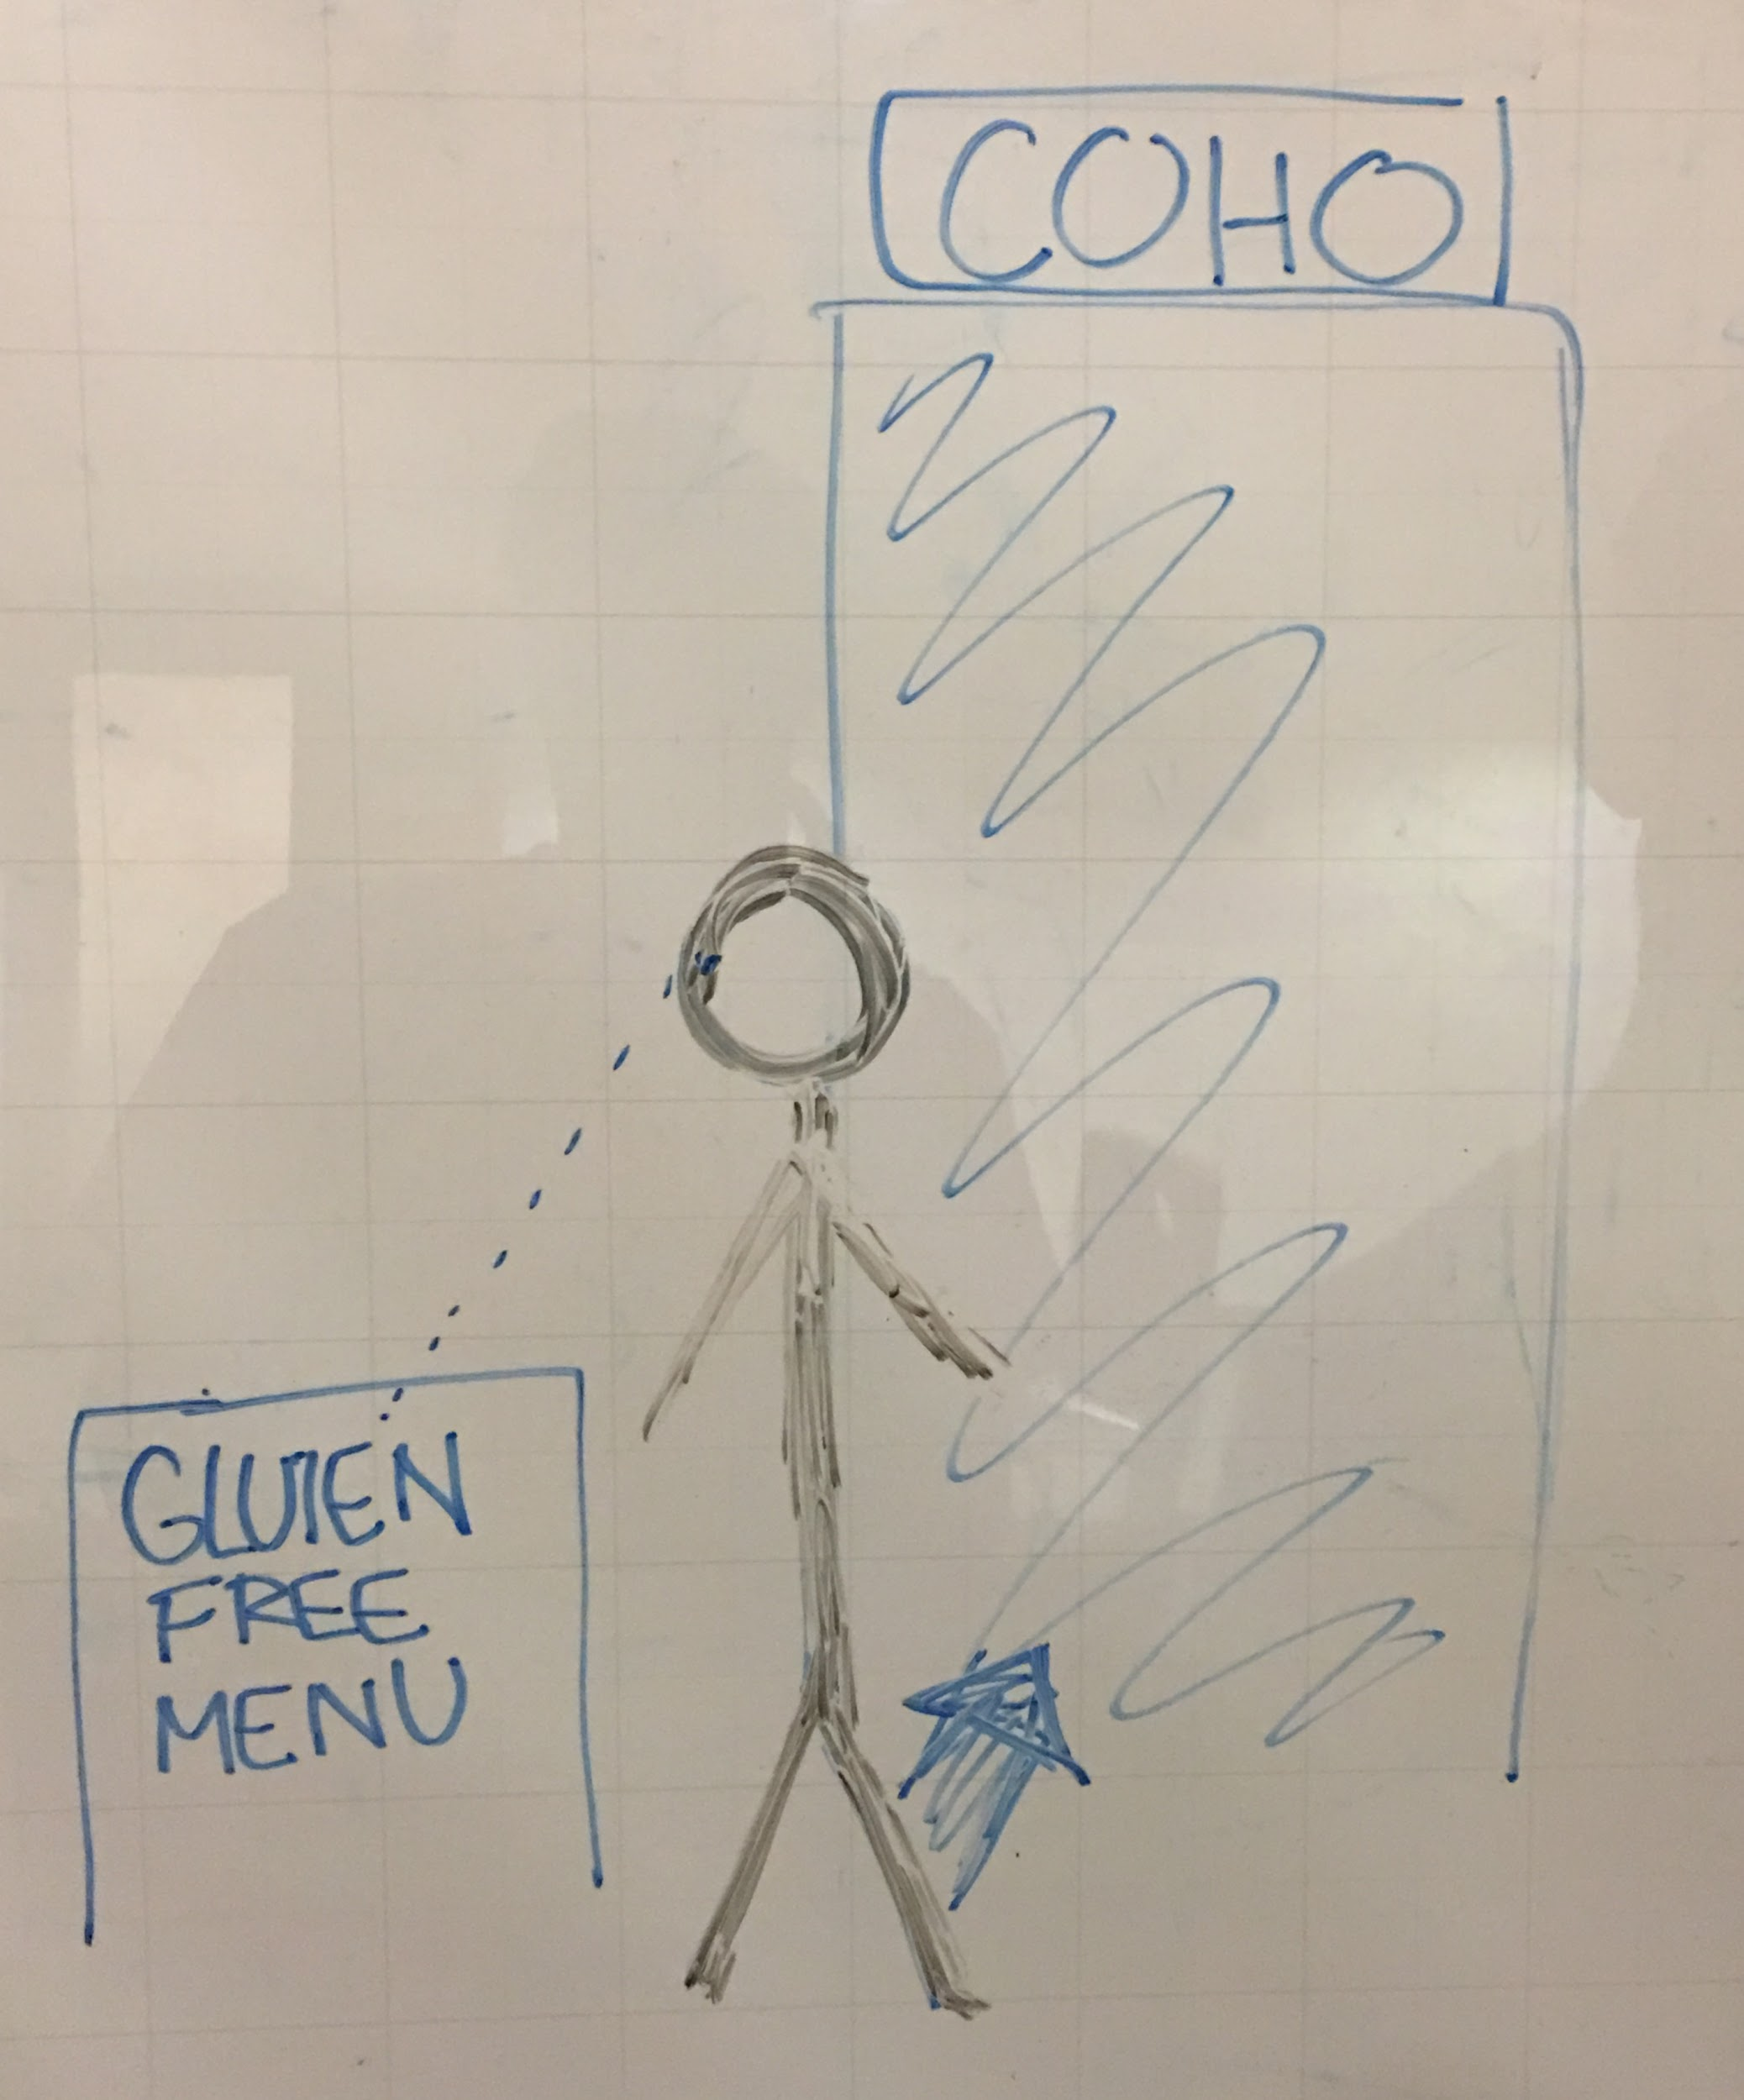 COHO
GLUTEN
FREE
MENU